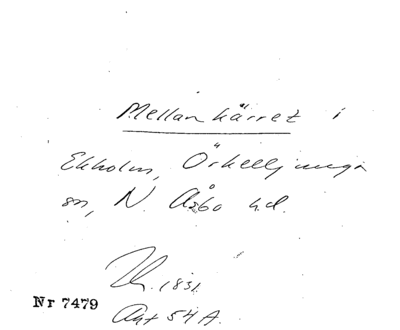 Mellankärret i
Ekholm, Örkelljunga
sn, N. Åsbo hd.
1831.
Nr 7479
Akt 54 A.